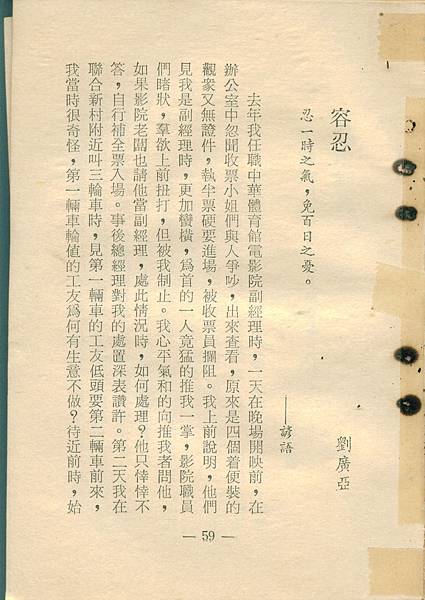 容忍
劉廣亞
忍一時之氣，免百日之憂。
——諺語
去年我任職中華體育館電影院副經理時，一天在晚場開映前，在
辦公室中忽聞收票小姐們與人爭吵，出來查看，原來是四個着便裝的
觀衆又無證件，執半票硬要進場，被收票員攔阻。我上前說明，他們
見我是副經理時，更加蠻橫，爲首的一人竟猛的推我一掌，影院職員
們睹狀，羣欲上前扭打，但被我制止。我心平氣和的向推我者問他，
如果影院老闆也請他當副經理，處此情況時，如何處理？他只悻悻不
答，自行補全票入場。事後總經理對我的處置深表讚許。第二天我在
聯合新村附近叫三輪車時，見第一輛車的工友低頭要第二輛車前來，
我當時很奇怪，第一輛車輪值的工友爲何有生意不做？待近前時，始
— 59 —